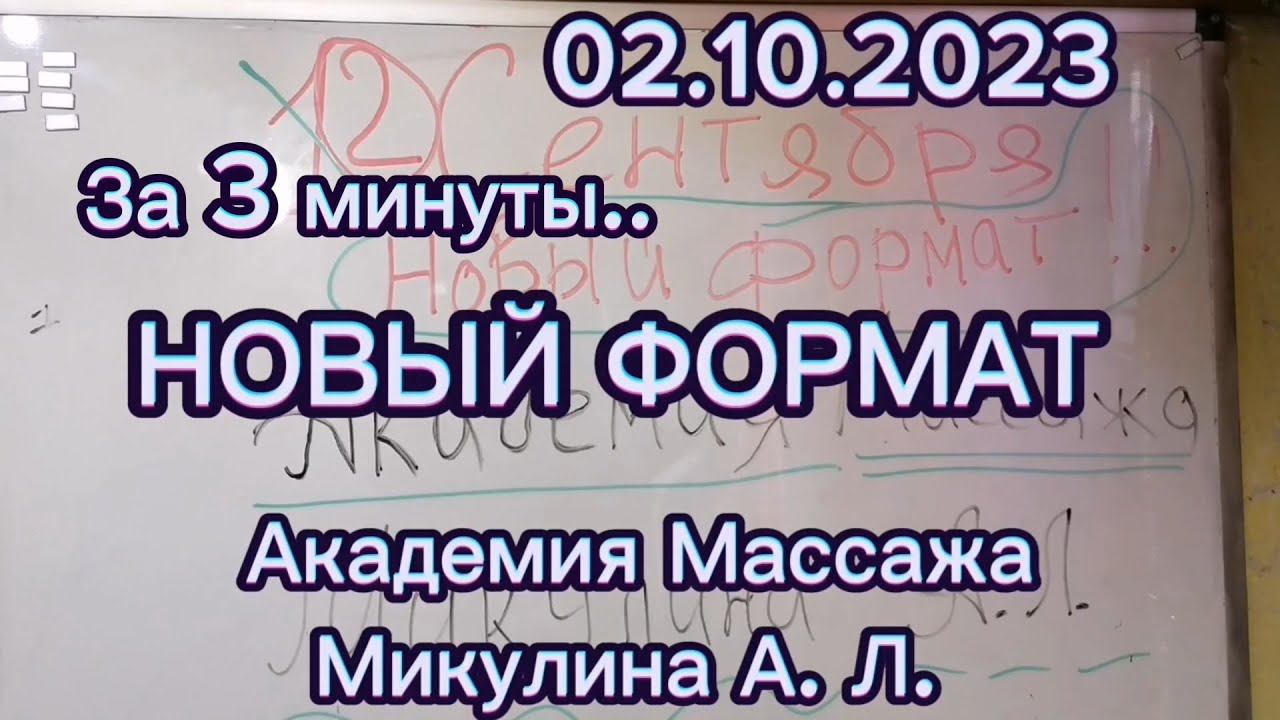 02.10.2023
12 Сентября!!
За 3 минуты..
Новый формат...
НОВЫЙ ФОРМАТ
Академия Массажа
Академия Массажа
Микулина А.Л.
Микулина А. Л.